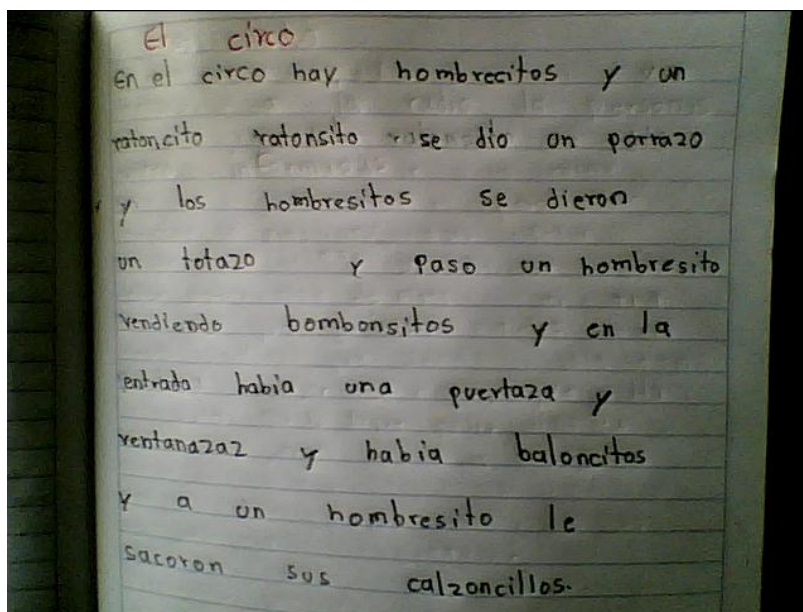 El circo
En el circo hay hombrecitos y un
ratoncito ratonsito se dio un porrazo
y los hombresitos se dieron
un totazo y paso un hombresito
vendiendo bombonsitos y en la
entrada habia una puertaza y
ventanazaz y habia baloncitos
y a un hombresito le
sacoron sus calzoncillos.